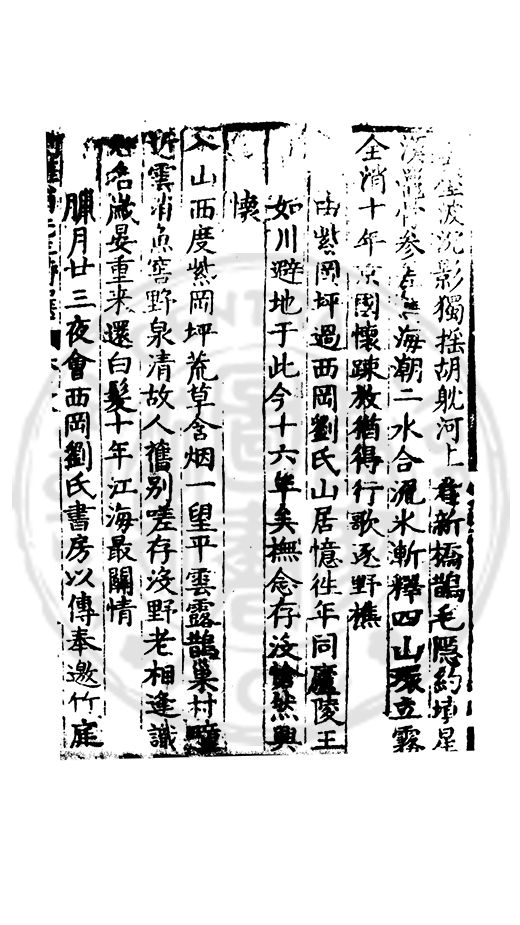 波沉影獨搖胡躭河上看新橋鵲毛隱約填星
漢參海潮二水合流氷漸釋四山環立霧
全消十年京國懷踈放猶得行歌逐野樵
由紫岡坪過西岡劉氏山居憶徃年同廬陵王
如川避地于此今十六年矣撫念存没然興
懷
山西度紫岡坪荒草含烟一望平雲露鵲巢村
近雲消魚窖野泉清故人舊別嗟存沒野老相逢識
名嵗晏重來還白髮十年江海最關情
臘月廿三夜會西岡劉氏書房以傳奉邀竹庭